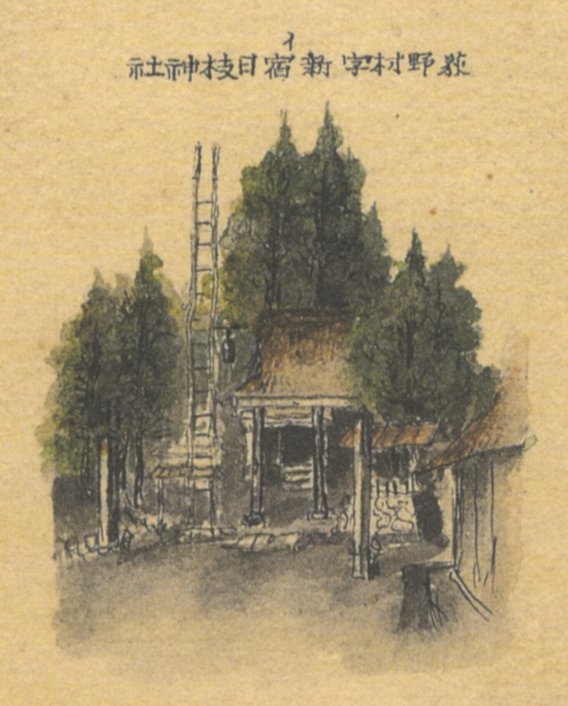 イ
荻野村字新宿日枝神社